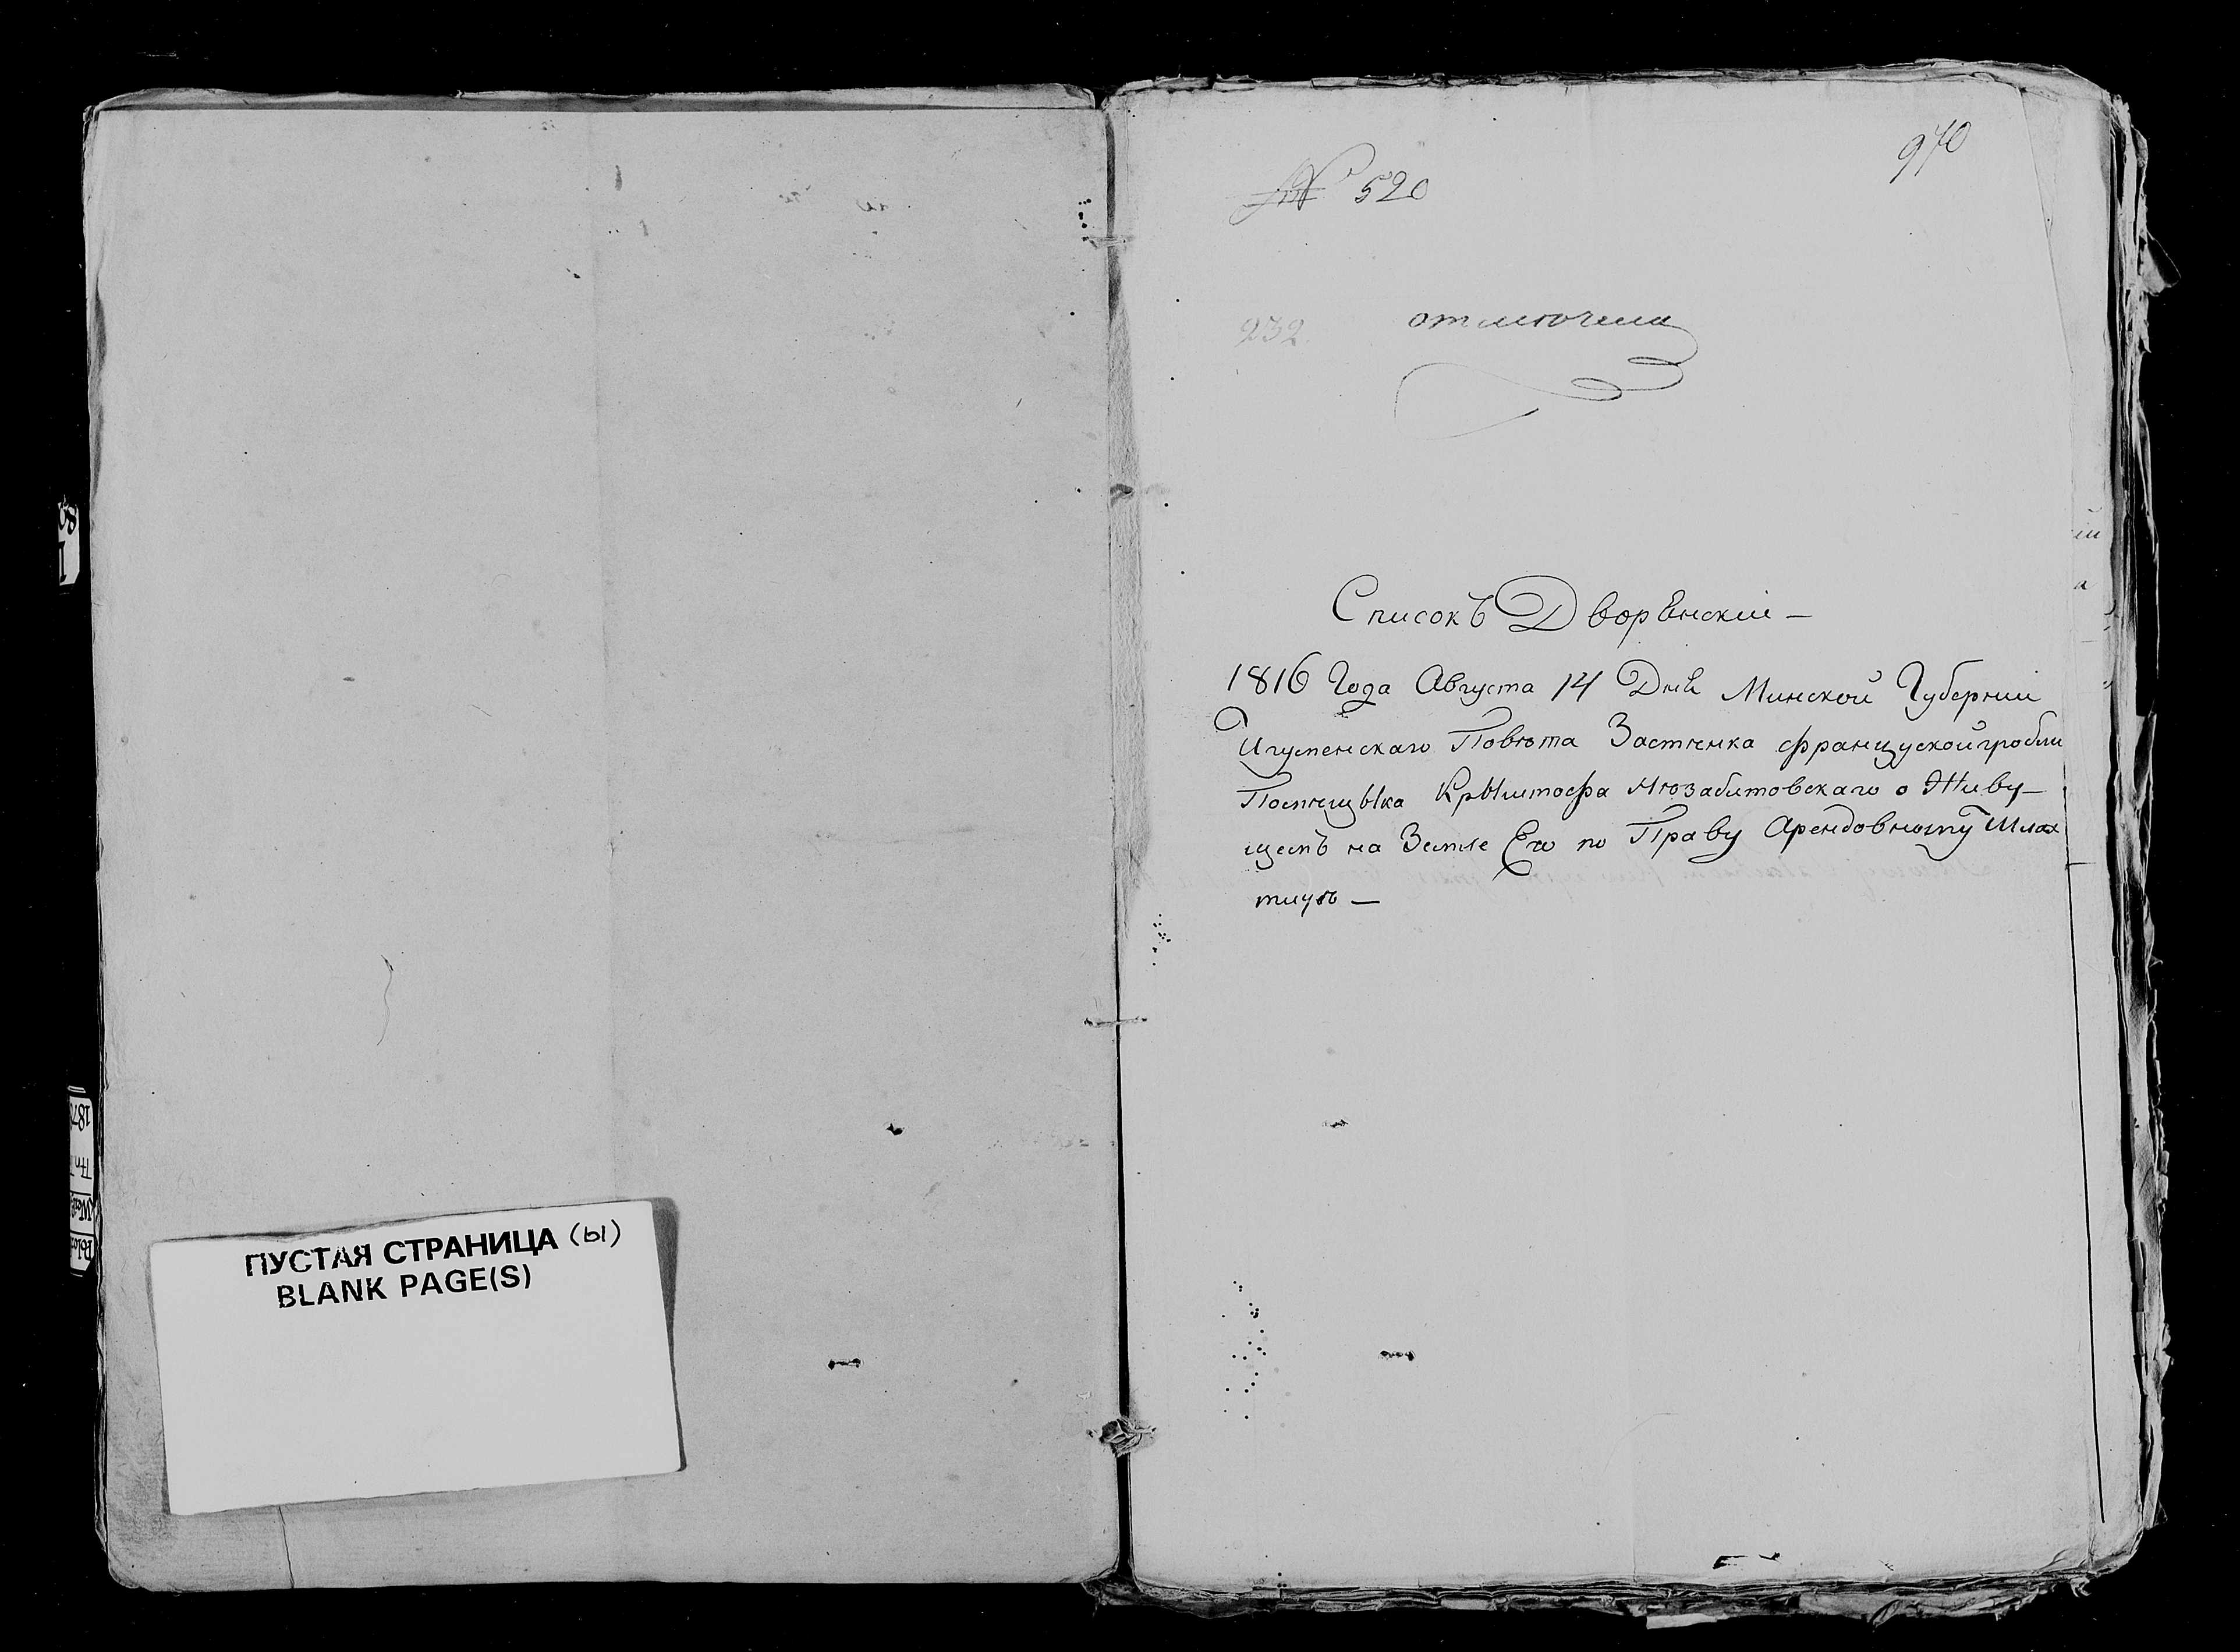 ПУСТАЯ СТРАНИЦА (ы)
BLANK PAGE(S)
970
№ 520
232.
отмечена
Списокъ Дворѣнскіи —
1816 Года Августа 14 Днѣ Минской Губерніи
Игуменскаго Повѣта Застѣнка француской гробли
Помѣщыка Крыштофа Нѣзабитовскаго о Живу-
щемъ на Земле Его по Праву Арендовному Шлях
тичѣ —